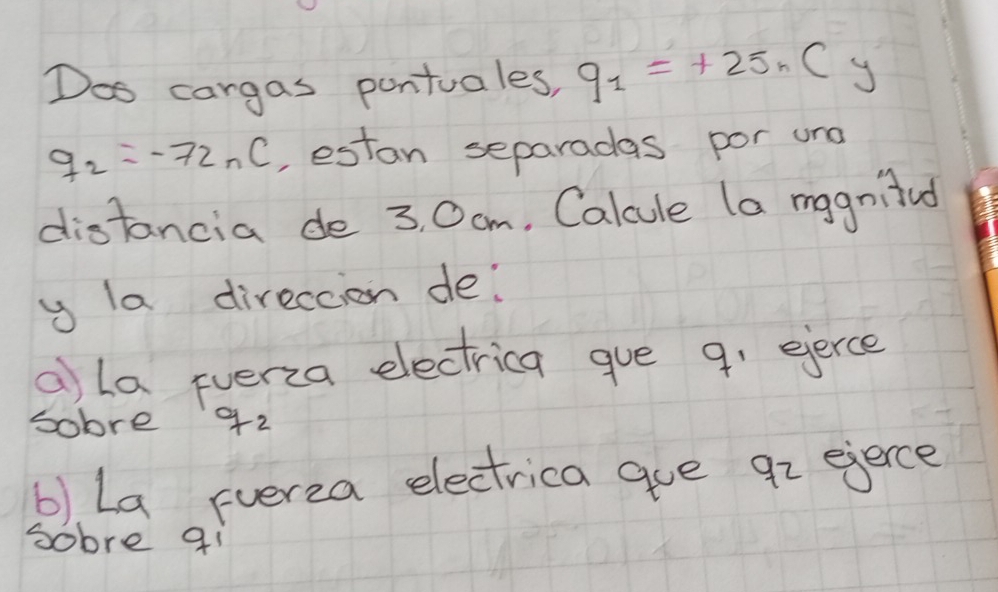 Dos cargas puntuales, q₁ = +25nC y
q₂ = -72nC, estan separadas por una
distancia de 3,0cm. Calcule la magnitud
y la direccion de:
a) La fuerza electrica que q₁ ejerce
sobre q₂
b) La fuerza electrica que q₂ ejerce
sobre q₁